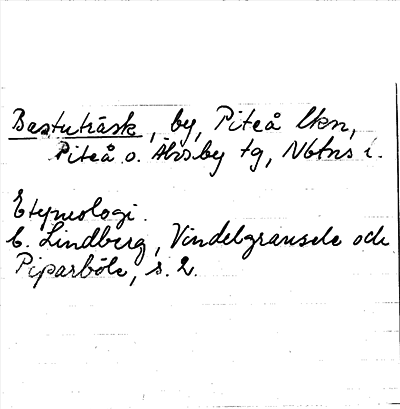 Bastuträsk, by, Piteå lkn,
Piteå o. Älvsby tg, Nbtns l.
Etymologi.
C. Lindberg, Vindelgransele och
Piparböle, s. 2.